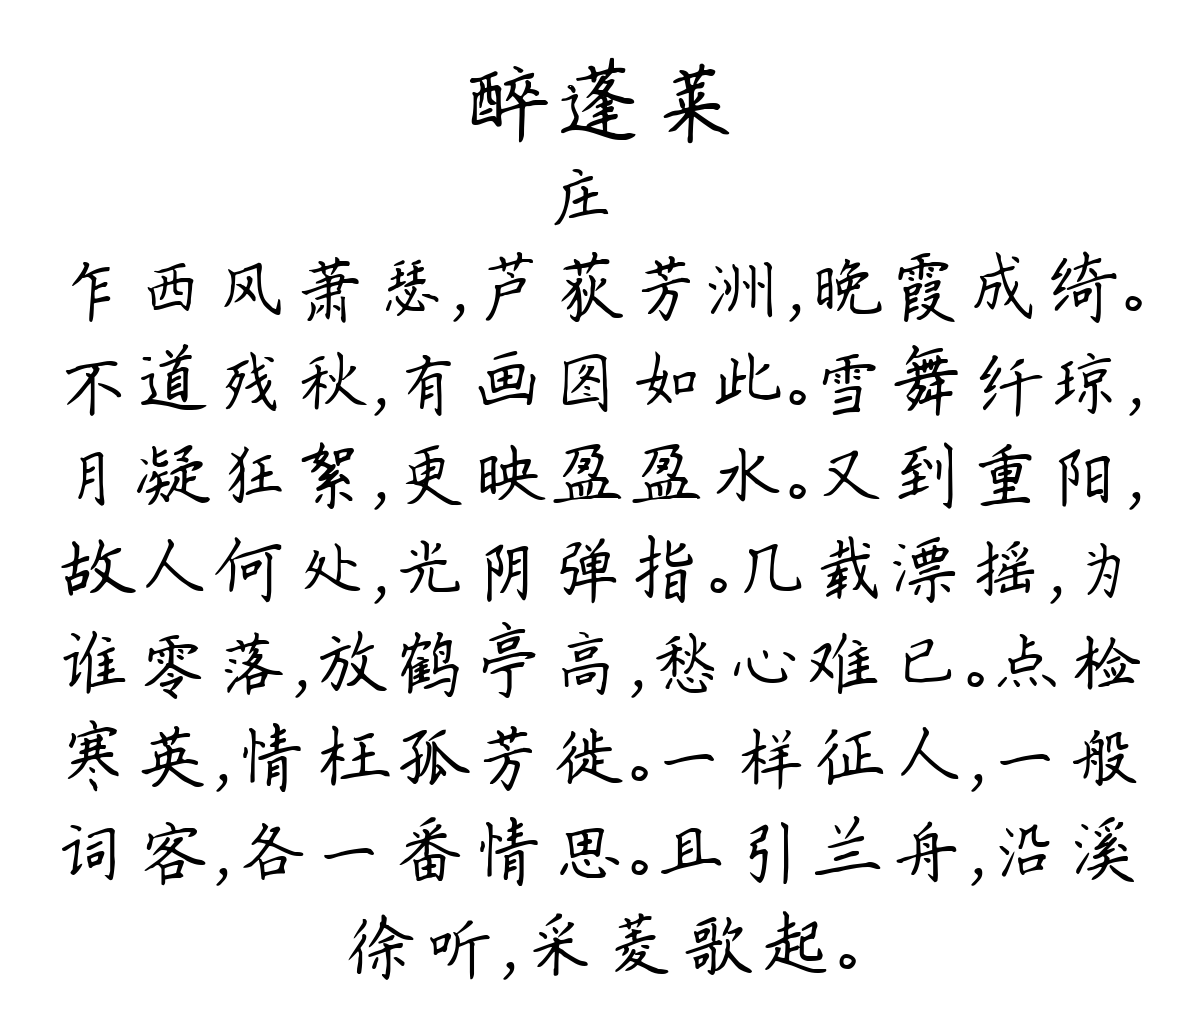 醉蓬莱
庄
乍西风萧瑟,芦荻芳洲,晚霞成绮。
不道残秋,有画图如此。雪舞纤琼,
月凝狂絮,更映盈盈水。又到重阳,
故人何处,光阴弹指。几载漂摇,为
谁零落,放鹤亭高,愁心难已。点检
寒英,情枉孤芳徙。一样征人,一般
词客,各一番情思。且引兰舟,沿溪
徐听,采菱歌起。